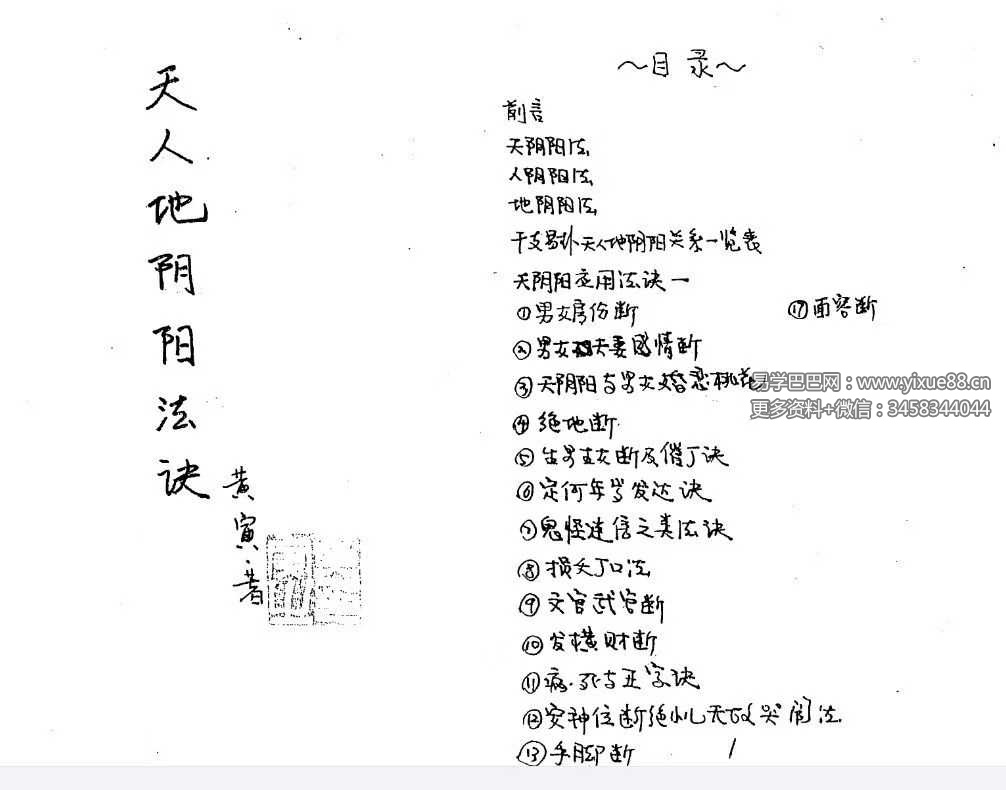 天人地阴阳法诀
黄寅·著
～目录～
前言
天阴阳法
人阴阳法
地阴阳法
干支易卦天人地阴阳关系一览表
天阴阳应用法诀一
①男女房份断
⑰面容断
②男女夫妻感情断
③天阴阳与男女婚恋桃花
易学巴巴网：www.yixue88.cn
更多资料+微信：3458344044
④绝地断
⑤生男生女断及催丁诀
⑥定何年岁发达诀
⑦鬼怪迷信之类法诀
⑧损女丁口法
⑨文官武官断
⑩发横财断
⑪病·死与正字诀
⑫安神位断绝小儿无故哭闹法
⑬手脚断
1